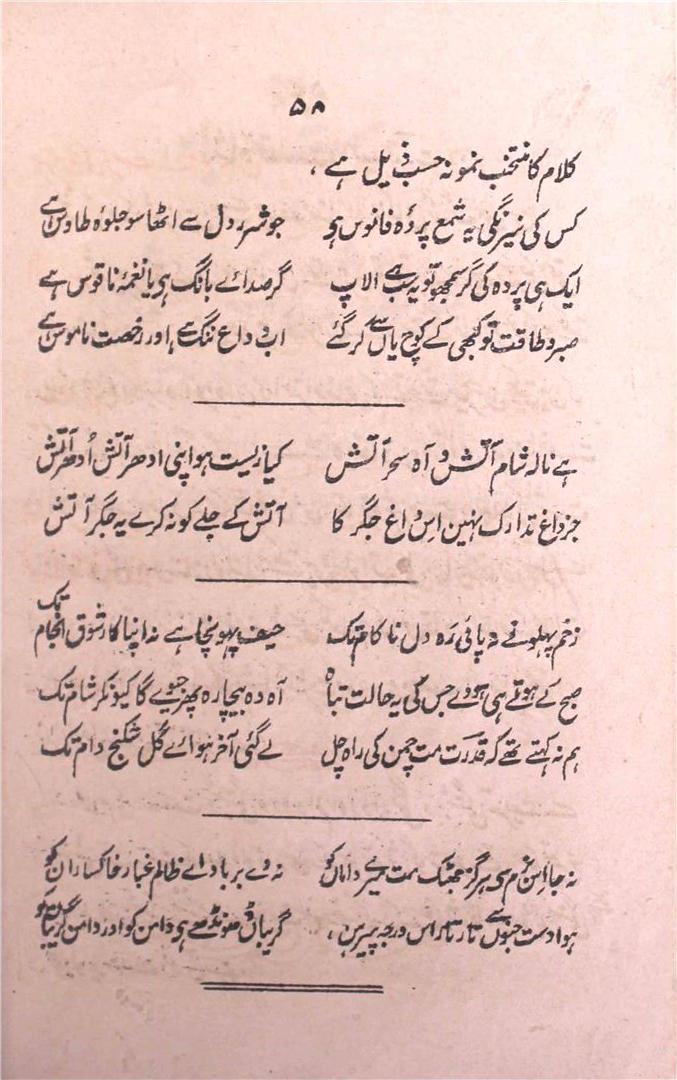 ۵۸
کلام کا منتخب نمونہ حسب ذیل ہے،
کس کی نیرنگی یہ شمع پردہ فانوس ہی جو شرر دل سے اٹھا سو جلوہ طاؤس ہے
ایک ہی پردہ کی گر سمجھو تو یہ سب ہے الاپ گر صدائے بانگ ہی یا نغمۂ ناقوس ہے
صبر و طاقت تو کبھی کے کوچ یاں سے کر گئے اب وداع ننگ ہے اور رخصت ناموس ہے
ہے نالہ شام آتش و آہ سحر آتش کیا زیست ہو اپنی ادھر آتش اُدھر آتش
جز داغ تدارک نہین اس داغ جگر کا آتش کے جلے کو نہ کرے یہ جگر آتش
زخم پہلو نے نہ پائی رہ دل ناکام تک حیف پہونچا ہے نہ اپنا کار شوق انجام تک
صبح کے ہوتے ہی ہووے جس کی یہ حالت تباہ آہ وہ بیچارہ پھر جیوے گا کیونکر شام تک
ہم نہ کہتے تھے کہ قدرت مت چمن کی راہ چل لے گئی آخر ہوائے گل شکنج دام تک
نہ جا اس بزم سی ہرگز جھٹک مت میرے داماں کو نہ دے برباد اے ظالم غبار خاکساران کو
ہوا دست جنوں سے تار تار اس درجہ پیرہن، گریباں ڈھونڈھے ہی دامن کو اور دامن گریباں کو